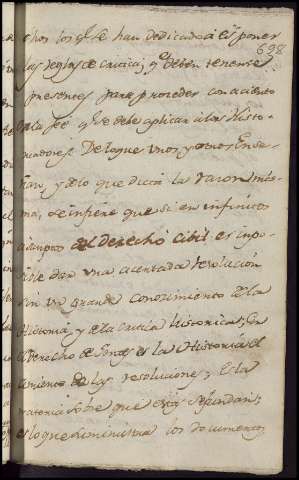 chos los q.e se han dedicado á esponer
698
las reglas de critica, q.e deben tenerse
presentes para proceder con acierto
la fee q.e se debe aplicar á los Histo-
riadores. De lo que unos, y otros Ense-
ñan, y de lo que dicta la razon mis-
ma, se infiere que si en infinitos
asuntos del derecho civil es impo-
sible dar una acertada resolucion
sin un grande conocimiento de la
Historia, y de la critica historica; en
el derecho de Gentes es la Historia el
cimiento de las resoluciones; Es la
materia sobre que estas se fundan;
es lo que suministra los documentos